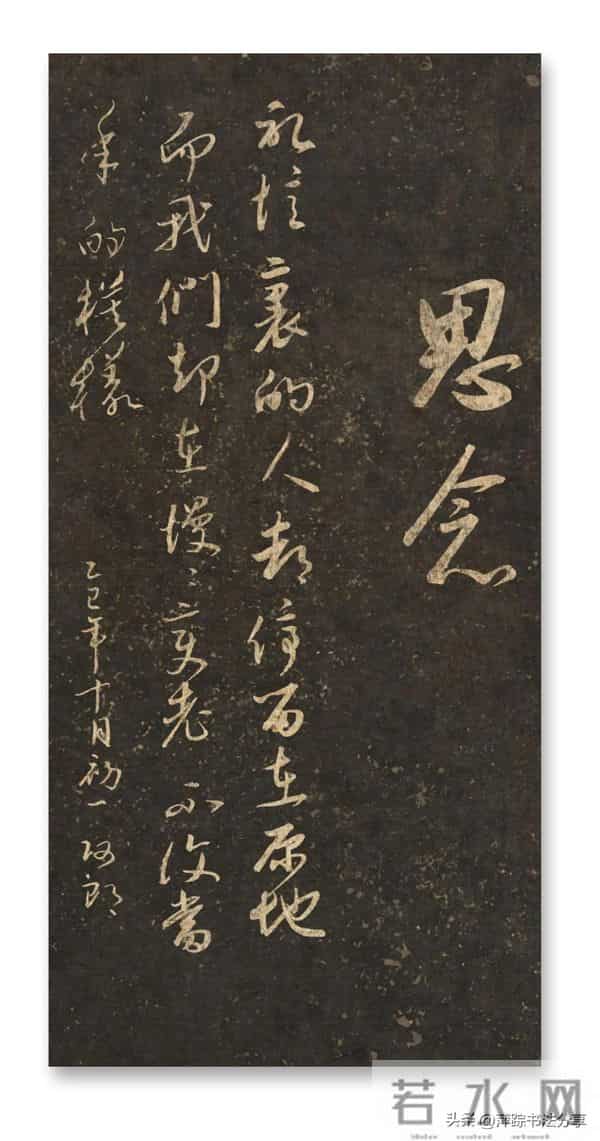 思念
記憶裏的人都停留在原地
而我們却在慢慢變老 不復當
年的模樣
乙巳年十月初一 阿郎
若水网
头条@萍踪书法分享